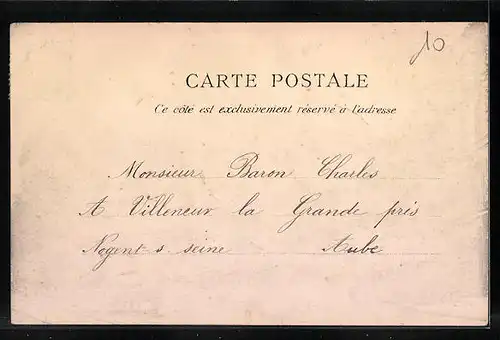 10
CARTE POSTALE
Ce côté est exclusivement réservé à l'adresse
Monsieur Baron Charles
A Villeneux la Grande près
Nogent s seine Aube